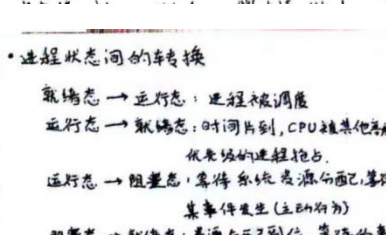 •进程状态间的转换
就绪态→运行态：进程被调度
运行态→就绪态：时间片到，CPU被其他高
优先级的进程抢占.
运行态→阻塞态：等待系统资源分配，等待
某事件发生(主动行为)